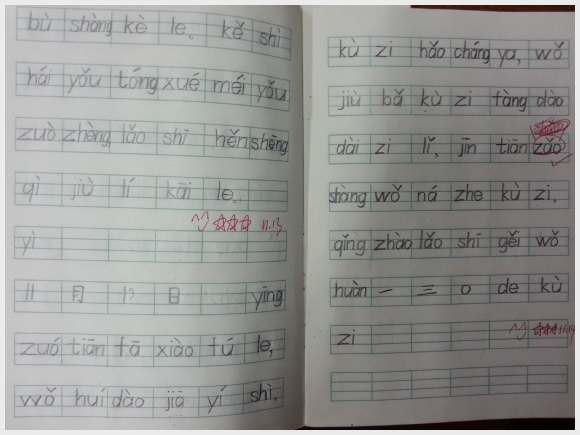 bù shàng kè le。kě shì
hái yǒu tóng xué méi yǒu
zuò zhèng lǎo shī hěn shēng
qì jiù lí kāi le。
11.13
yì
11 月 13 日 yīng
zuó tiān tā xiào tú le,
wǒ huí dào jiā yí shì,
kù zi hǎo cháng ya, wǒ
jiù bǎ kù zi fàng dào
dài zi lǐ, jīn tiān zǎo
shàng wǒ ná zhe kù zi,
qǐng zhào lǎo shī gěi wǒ
huàn 一 三 o de kù
zi